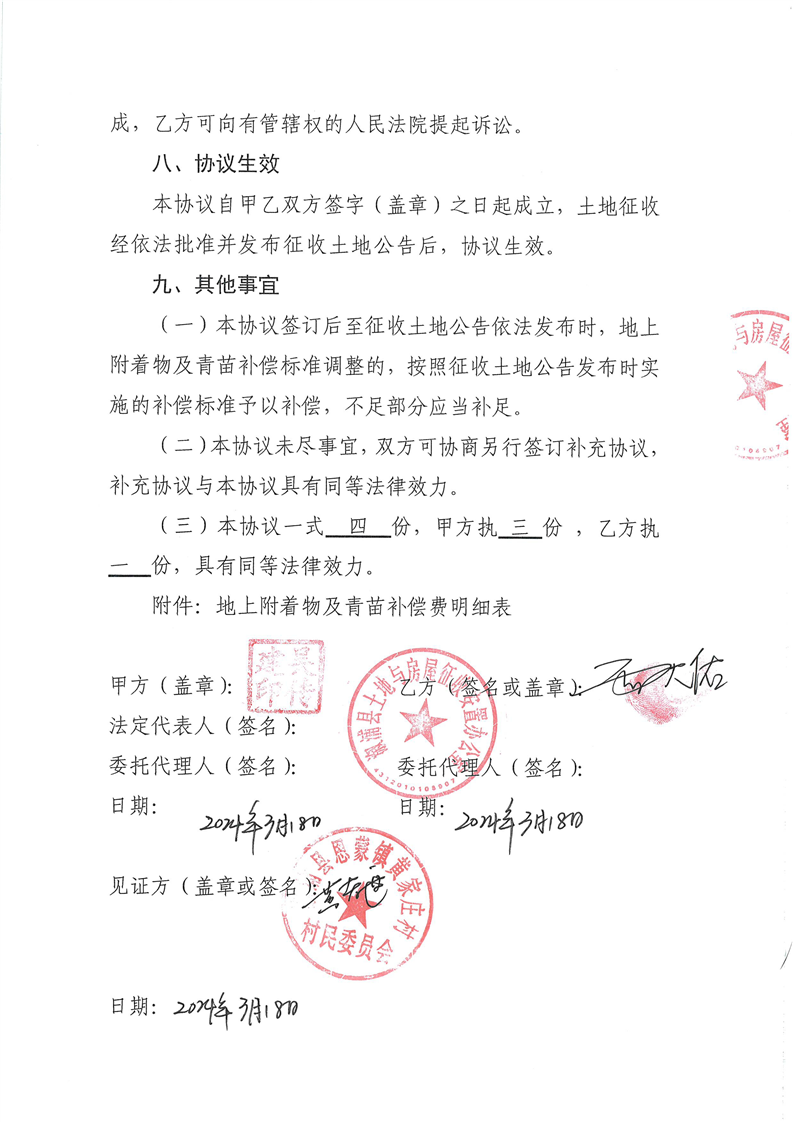 成，乙方可向有管辖权的人民法院提起诉讼。
八、协议生效
本协议自甲乙双方签字（盖章）之日起成立，土地征收
经依法批准并发布征收土地公告后，协议生效。
九、其他事宜
（一）本协议签订后至征收土地公告依法发布时，地上
附着物及青苗补偿标准调整的，按照征收土地公告发布时实
施的补偿标准予以补偿，不足部分应当补足。
（二）本协议未尽事宜，双方可协商另行签订补充协议，
补充协议与本协议具有同等法律效力。
（三）本协议一式 四 份，甲方执 三 份 ，乙方执
一 份，具有同等法律效力。
附件：地上附着物及青苗补偿费明细表
与房屋征
甲方（盖章）：
乙方（签名或盖章）：
溆浦县土地与房屋征收安置办公室
法定代表人（签名）：
委托代理人（签名）：
委托代理人（签名）：
日期： 2024年3月18日
日期： 2024年3月18日
见证方（盖章或签名）：
县恩蒙镇黄家庄村
村民委员会
日期： 2024年3月18日